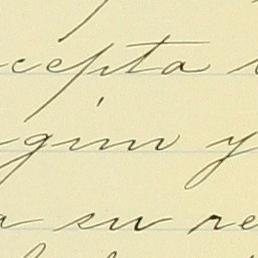 cepta
gim y
a su re